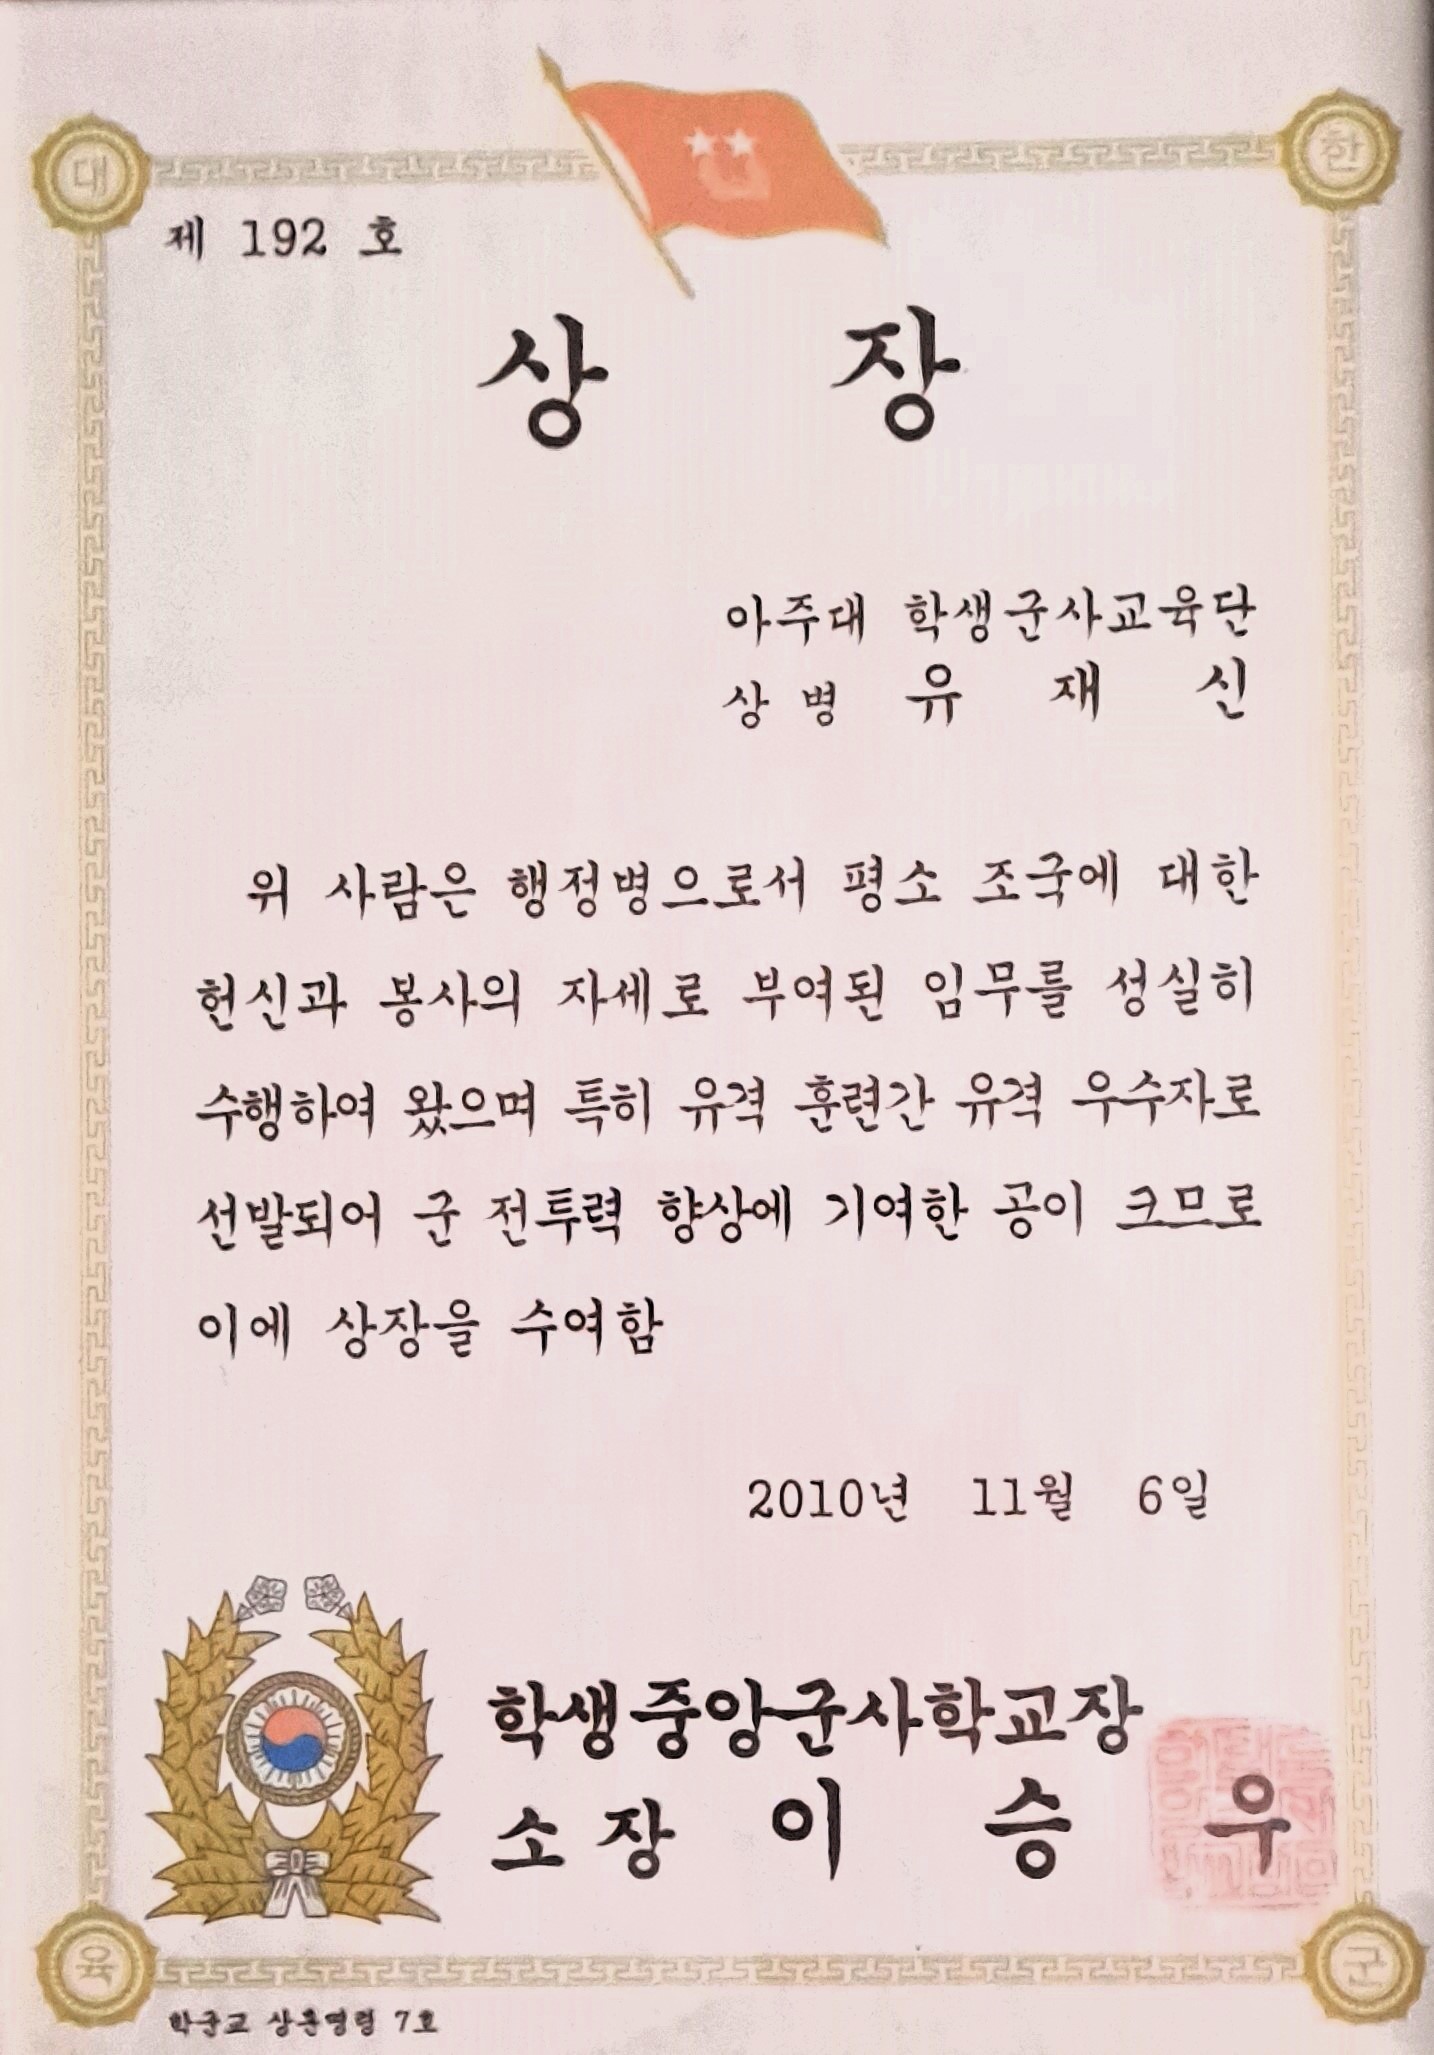 대 한
제 192 호
상 장
아주대 학생군사교육단
상 병 유 재 신
위 사람은 행정병으로서 평소 조국에 대한
헌신과 봉사의 자세로 부여된 임무를 성실히
수행하여 왔으며 특히 유격 훈련간 유격 우수자로
선발되어 군 전투력 향상에 기여한 공이 크므로
이에 상장을 수여함
2010년 11월 6일
학생중앙군사학교장
소 장 이 승 우
육 군
학군교 상훈명령 7호